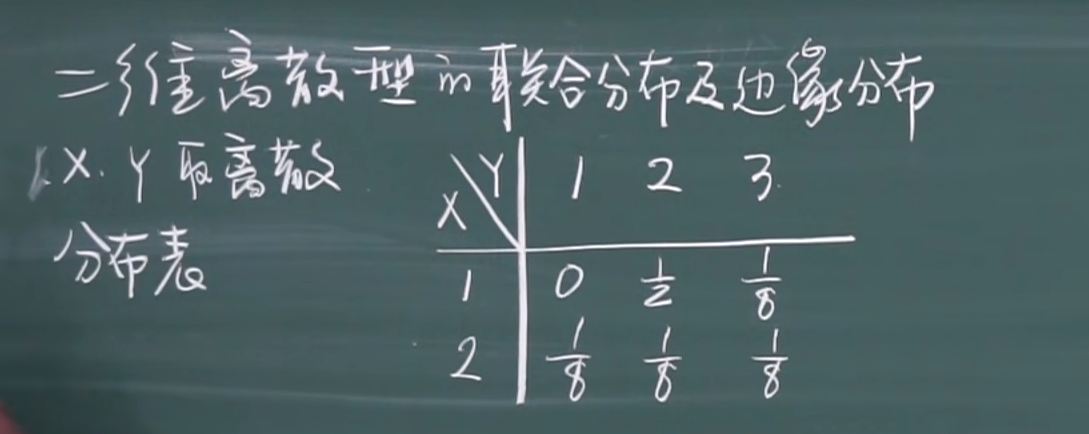 二维离散型的联合分布及边缘分布
1. X. Y 取离散
分布表
X\Y 1 2 3
1 0 1/2 1/8
2 1/8 1/8 1/8